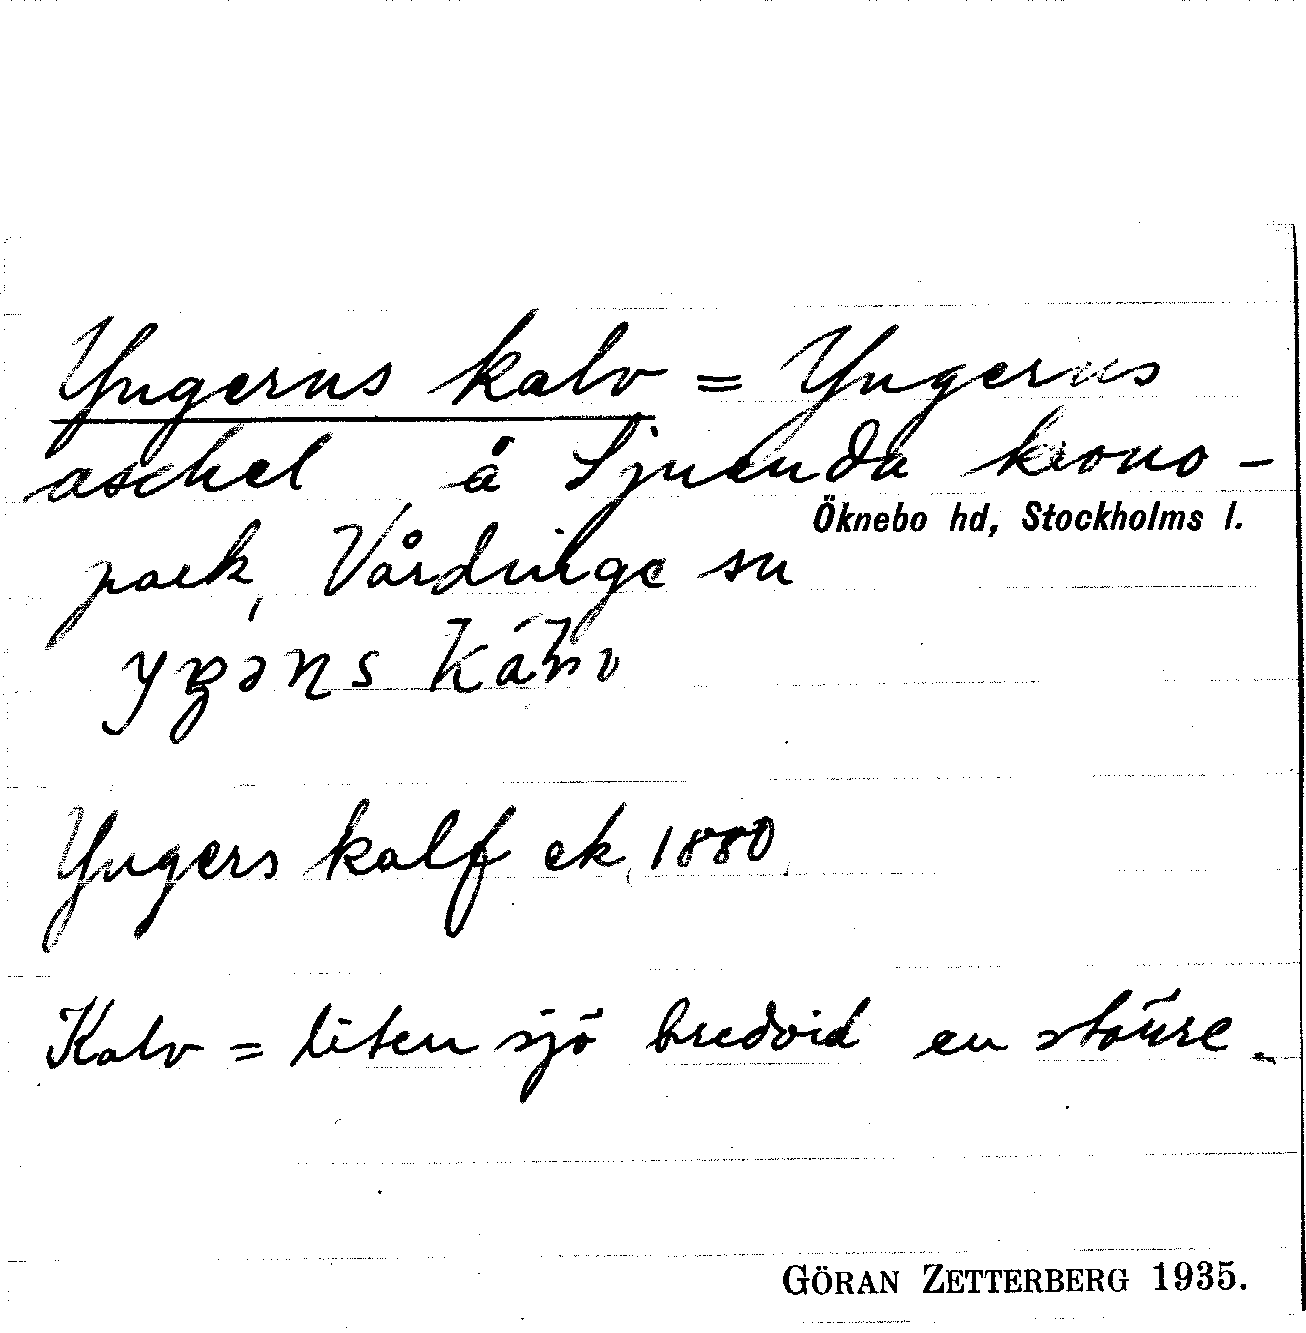 Yngerns kalv = Yngerns
aschel å Sjunda krono-
Öknebo hd, Stockholms l.
park, Vårdinge sn
Yngers kalf ek 1880
Kalv = liten sjö bredvid en större.
GÖRAN ZETTERBERG 1935.